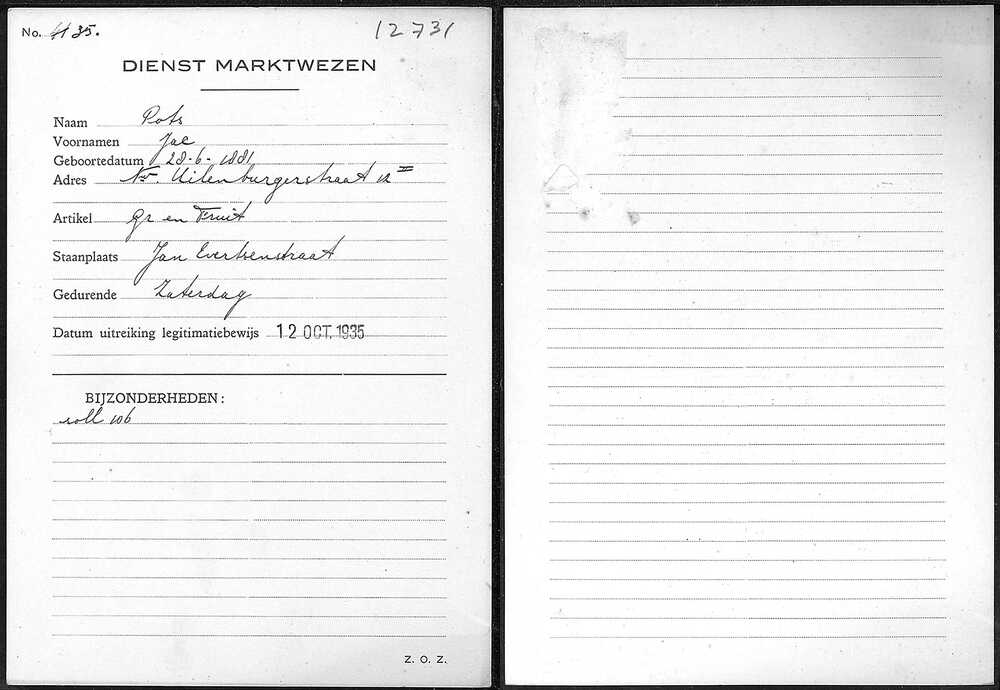 No. 4135.
12731
DIENST MARKTWEZEN
Naam Pots
Voornamen Jac
Geboortedatum 28-6-1881
Adres Nw. Uilenburgerstraat 12 II
Artikel Gr en Fruit
Staanplaats Jan Evertsenstraat
Gedurende Zaterdag
Datum uitreiking legitimatiebewijs 12 OCT. 1935
BIJZONDERHEDEN:
Z. O. Z.